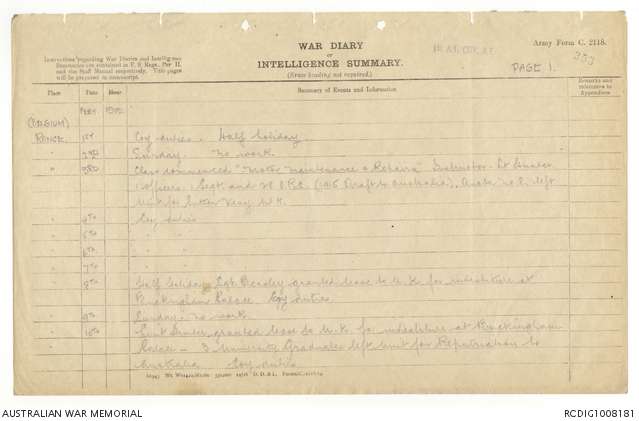 WAR DIARY
or
INTELLIGENCE SUMMARY.
(Erase heading not required).
Army Form C. 2118.
PAGE 1.
Instructions regarding War Diaries and Intelligence
Summaries are contained in F. S. Regs., Par II.
and the Staff Manual respectively. Title pages
will be prepared in manuscript.
Place Date Hour Summary of Events and Information Remarks and references to Appendices
(BELGIUM)
RONCK. 1ST Coy duties. Half holiday
" 2ND Sunday. No work
" 3RD Class commenced "Motor maintenance & Repairs" Instructor Lt
Officers. Sgt. and 28 (1915 Draft to Australia). left
Unit for Sutton Veny
" 4TH Coy duties
" 5TH " "
" 6TH " "
" 7TH " "
" 8TH Half holiday. Sgt granted leave to U.K. for investiture at
Buckingham Palace Coy duties.
" 9TH Sunday. No work.
" 10TH granted leave to U.K. for investiture at Buckingham
Palace - 3 University Graduates left Unit for Repatriation to
Australia Coy duties.
AUSTRALIAN WAR MEMORIAL
RCDIG1008181